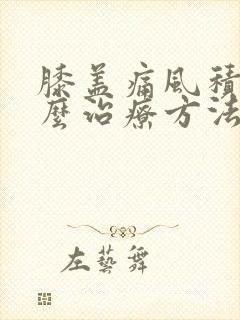 膝盖痛風積
麼治療方法
左藝舞